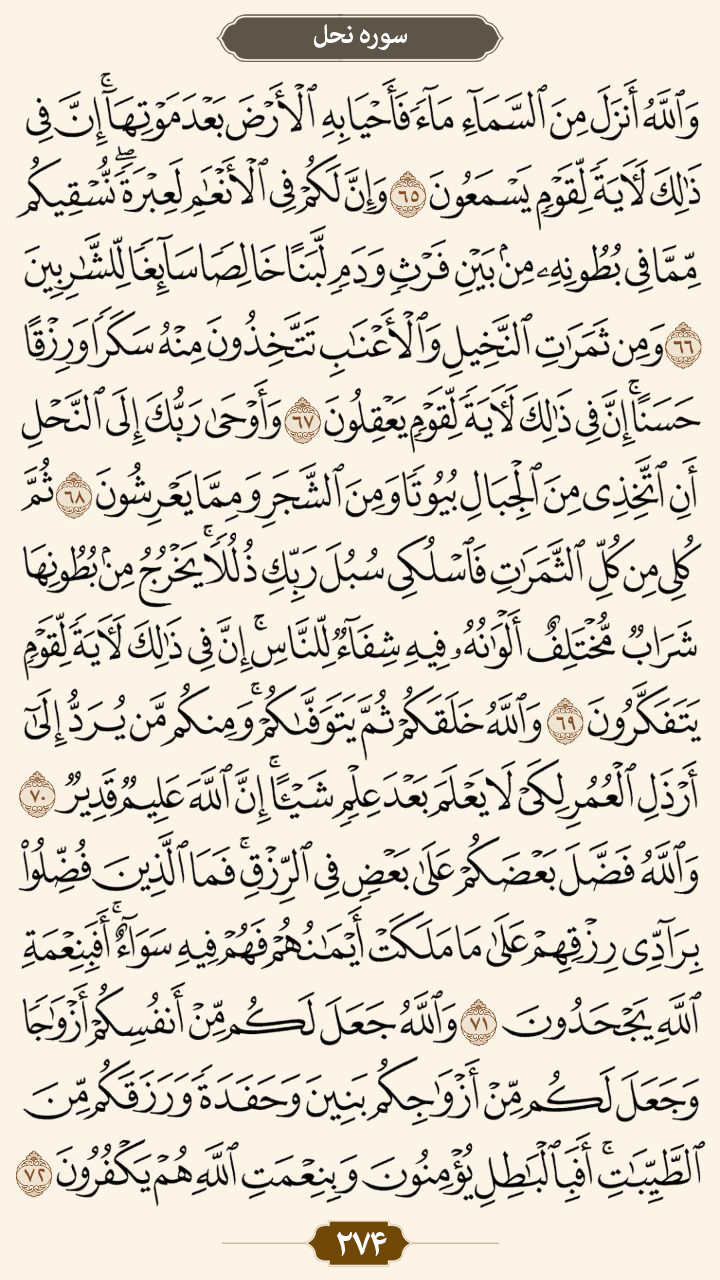 سوره نحل
وَٱللَّهُ أَنزَلَ مِنَ ٱلسَّمَآءِ مَآءً فَأَحۡيَا بِهِ ٱلۡأَرۡضَ بَعۡدَ مَوۡتِهَآۚ إِنَّ فِي
ذَٰلِكَ لَأٓيَةً لِّقَوۡمٍ يَسۡمَعُونَ ٦٥ وَإِنَّ لَكُمۡ فِي ٱلۡأَنۡعَٰمِ لَعِبۡرَةًۖ نُّسۡقِيكُم
مِّمَّا فِي بُطُونِهِۦ مِنۢ بَيۡنِ فَرۡثٍ وَدَمٍ لَّبَنًا خَالِصًا سَآئِغًا لِّلشَّٰرِبِينَ
٦٦ وَمِن ثَمَرَٰتِ ٱلنَّخِيلِ وَٱلۡأَعۡنَٰبِ تَتَّخِذُونَ مِنۡهُ سَكَرًا وَرِزۡقًا
حَسَنًاۚ إِنَّ فِي ذَٰلِكَ لَأٓيَةً لِّقَوۡمٍ يَعۡقِلُونَ ٦٧ وَأَوۡحَىٰ رَبُّكَ إِلَى ٱلنَّحۡلِ
أَنِ ٱتَّخِذِي مِنَ ٱلۡجِبَالِ بُيُوتًا وَمِنَ ٱلشَّجَرِ وَمِمَّا يَعۡرِشُونَ ٦٨ ثُمَّ
كُلِي مِن كُلِّ ٱلثَّمَرَٰتِ فَٱسۡلُكِي سُبُلَ رَبِّكِ ذُلُلًاۚ يَخۡرُجُ مِنۢ بُطُونِهَا
شَرَابٌ مُّخۡتَلِفٌ أَلۡوَٰنُهُۥ فِيهِ شِفَآءٌ لِّلنَّاسِۚ إِنَّ فِي ذَٰلِكَ لَأٓيَةً لِّقَوۡمٍ
يَتَفَكَّرُونَ ٦٩ وَٱللَّهُ خَلَقَكُمۡ ثُمَّ يَتَوَفَّىٰكُمۡۚ وَمِنكُم مَّن يُرَدُّ إِلَىٰٓ
أَرۡذَلِ ٱلۡعُمُرِ لِكَيۡ لَا يَعۡلَمَ بَعۡدَ عِلۡمٍ شَيۡـًٔاۚ إِنَّ ٱللَّهَ عَلِيمٌ قَدِيرٌ ٧٠
وَٱللَّهُ فَضَّلَ بَعۡضَكُمۡ عَلَىٰ بَعۡضٍ فِي ٱلرِّزۡقِۚ فَمَا ٱلَّذِينَ فُضِّلُواْ
بِرَآدِّي رِزۡقِهِمۡ عَلَىٰ مَا مَلَكَتۡ أَيۡمَٰنُهُمۡ فَهُمۡ فِيهِ سَوَآءٌۚ أَفَبِنِعۡمَةِ
ٱللَّهِ يَجۡحَدُونَ ٧١ وَٱللَّهُ جَعَلَ لَكُم مِّنۡ أَنفُسِكُمۡ أَزۡوَٰجًا
وَجَعَلَ لَكُم مِّنۡ أَزۡوَٰجِكُم بَنِينَ وَحَفَدَةً وَرَزَقَكُم مِّنَ
ٱلطَّيِّبَٰتِۚ أَفَبِٱلۡبَٰطِلِ يُؤۡمِنُونَ وَبِنِعۡمَتِ ٱللَّهِ هُمۡ يَكۡفُرُونَ ٧٢
۲۷۴